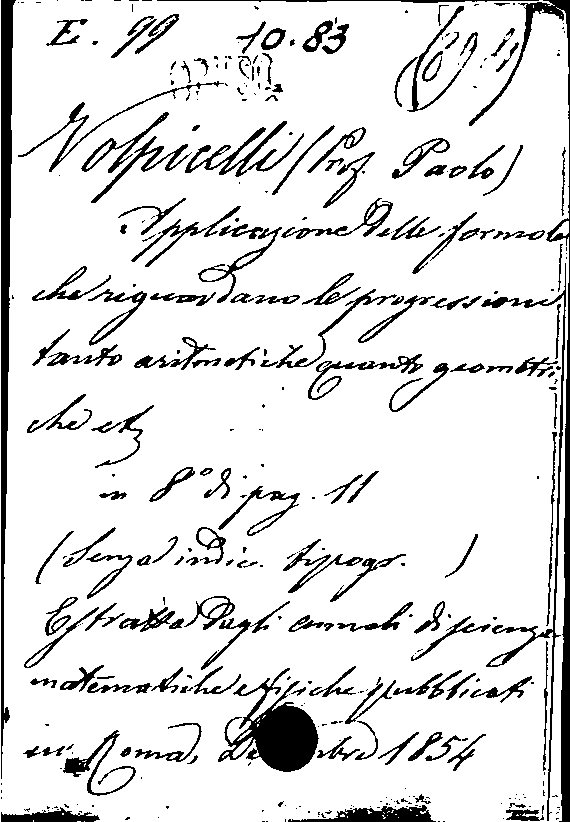 E. 99 10.83
Volpicelli (Prof. Paolo)
Applicazione delle formole
che riguardano le progressioni
tanto aritmetiche quanto geometri
che etc
in 8° di pag. 11
(Senza indic. tipogr. )
Estratto dagli annali di scienze
matematiche e fisiche pubblicati
in Roma, Dicembre 1854